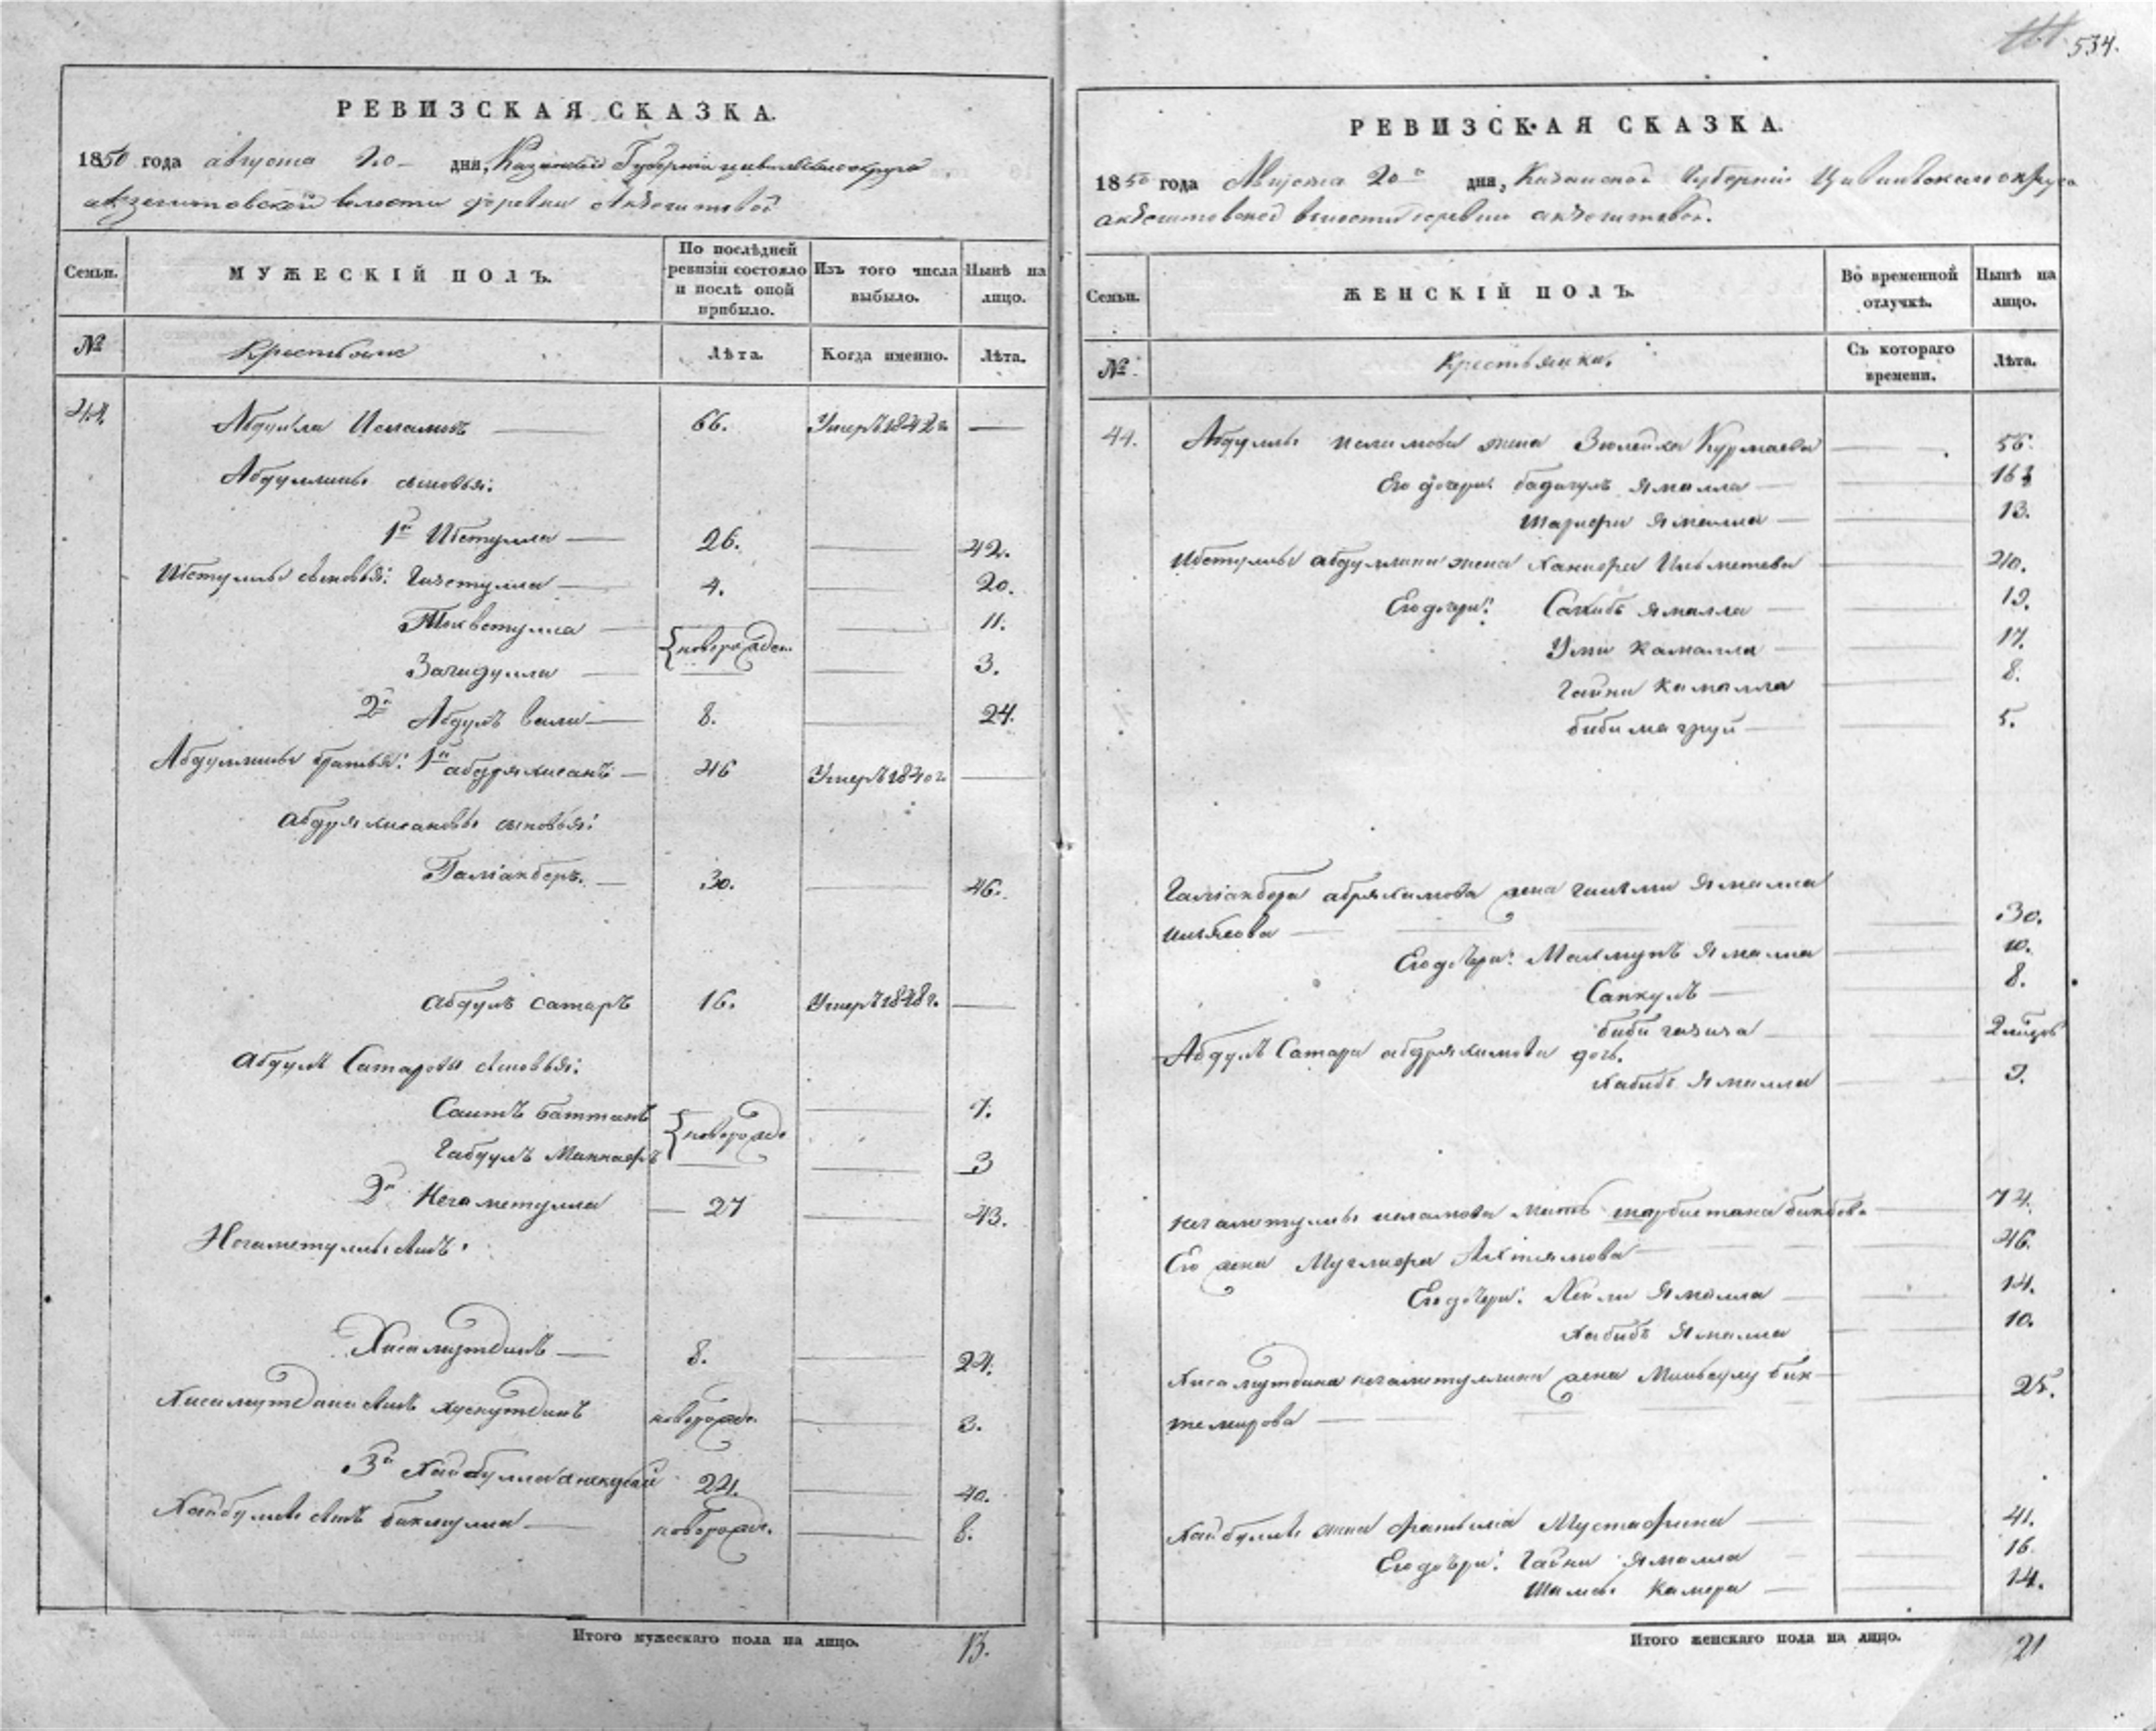 534.
РЕВИЗСКАЯ СКАЗКА.
1850 года августа 20 дня, Казанской Губернии цивильского округа
акзегитовской волости деревни Акзегитовой
Семьи.
МУЖЕСКІЙ ПОЛЪ.
По послѣдней ревизіи состояло и послѣ оной прибыло.
Изъ того числа выбыло.
Нынѣ на лицо.
№
Крестьяне
Лѣта.
Когда именно.
Лѣта.
44. Абдулла Исламовъ 66. Умеръ 1842 г.
Абдуллины сыновья:
1й Ибетулла 26. 42.
Ибетуллы сыновья: Гизетулла 4. 20.
новорожден. 11.
Загидулла 3.
2й Абдулъ вали 8. 24.
Абдуллины братья: 1й абдряхманъ 46 Умеръ 1840 г.
сыновья:
Галіакберъ 30. 46.
абдулъ сатаръ 16. Умеръ 1848 г.
абдулъ Сатаровы сыновья:
Саитъ баттанъ новорожд. 7.
Габдулъ Маннафъ 3
2й Негаметулла 27 43.
Негаметуллы сынъ:
Хисамутдинъ 8. 24.
Хисамутдина сынъ хуснутдинъ новорожд. 3.
3й Хайбулла 24. 40.
Хайбуллы сынъ бикмулла новорожд. 8.
Итого мужескаго пола на лицо. 13.
РЕВИЗСКАЯ СКАЗКА.
1850 года Августа 20 дня, Казанской Губерніи Цивильскаго округа
акзегитовской волости деревни акзегитовой.
Семьи.
ЖЕНСКІЙ ПОЛЪ.
Во временной отлучкѣ.
Нынѣ на лицо.
№
Крестьянки.
Съ котораго времени.
Лѣта.
44. Абдуллы исламова жена Зюлейха Курмаева 56.
Его дочери: бадигулъ ямалла 16
Шарифи ямалла 13.
Ибетуллы абдуллина жена Ханифа Ильметева 40.
Его дочери: Сахибъ ямалла 19.
Умми камалла 17.
Гайни камалла 8.
биби магруй 5.
Галіакбера абряхимова жена ямалла
ильясова 30.
Его дочери: ямалла 10.
8.
биби газиза
Абдулъ Сатара абдряхимова дочь.
хабибъ ямалла 9.
негаметуллы исламова мать 74.
Его жена 46.
Его дочери: ямалла 14.
хабибъ ямалла 10.
Хисамутдина негаметуллина жена бик
темирова 25.
Хайбуллы жена фатыма Мустафина 41.
Его дочери: Гайни ямалла 16.
Шамсы Камера 14.
Итого женскаго пола на лицо. 21